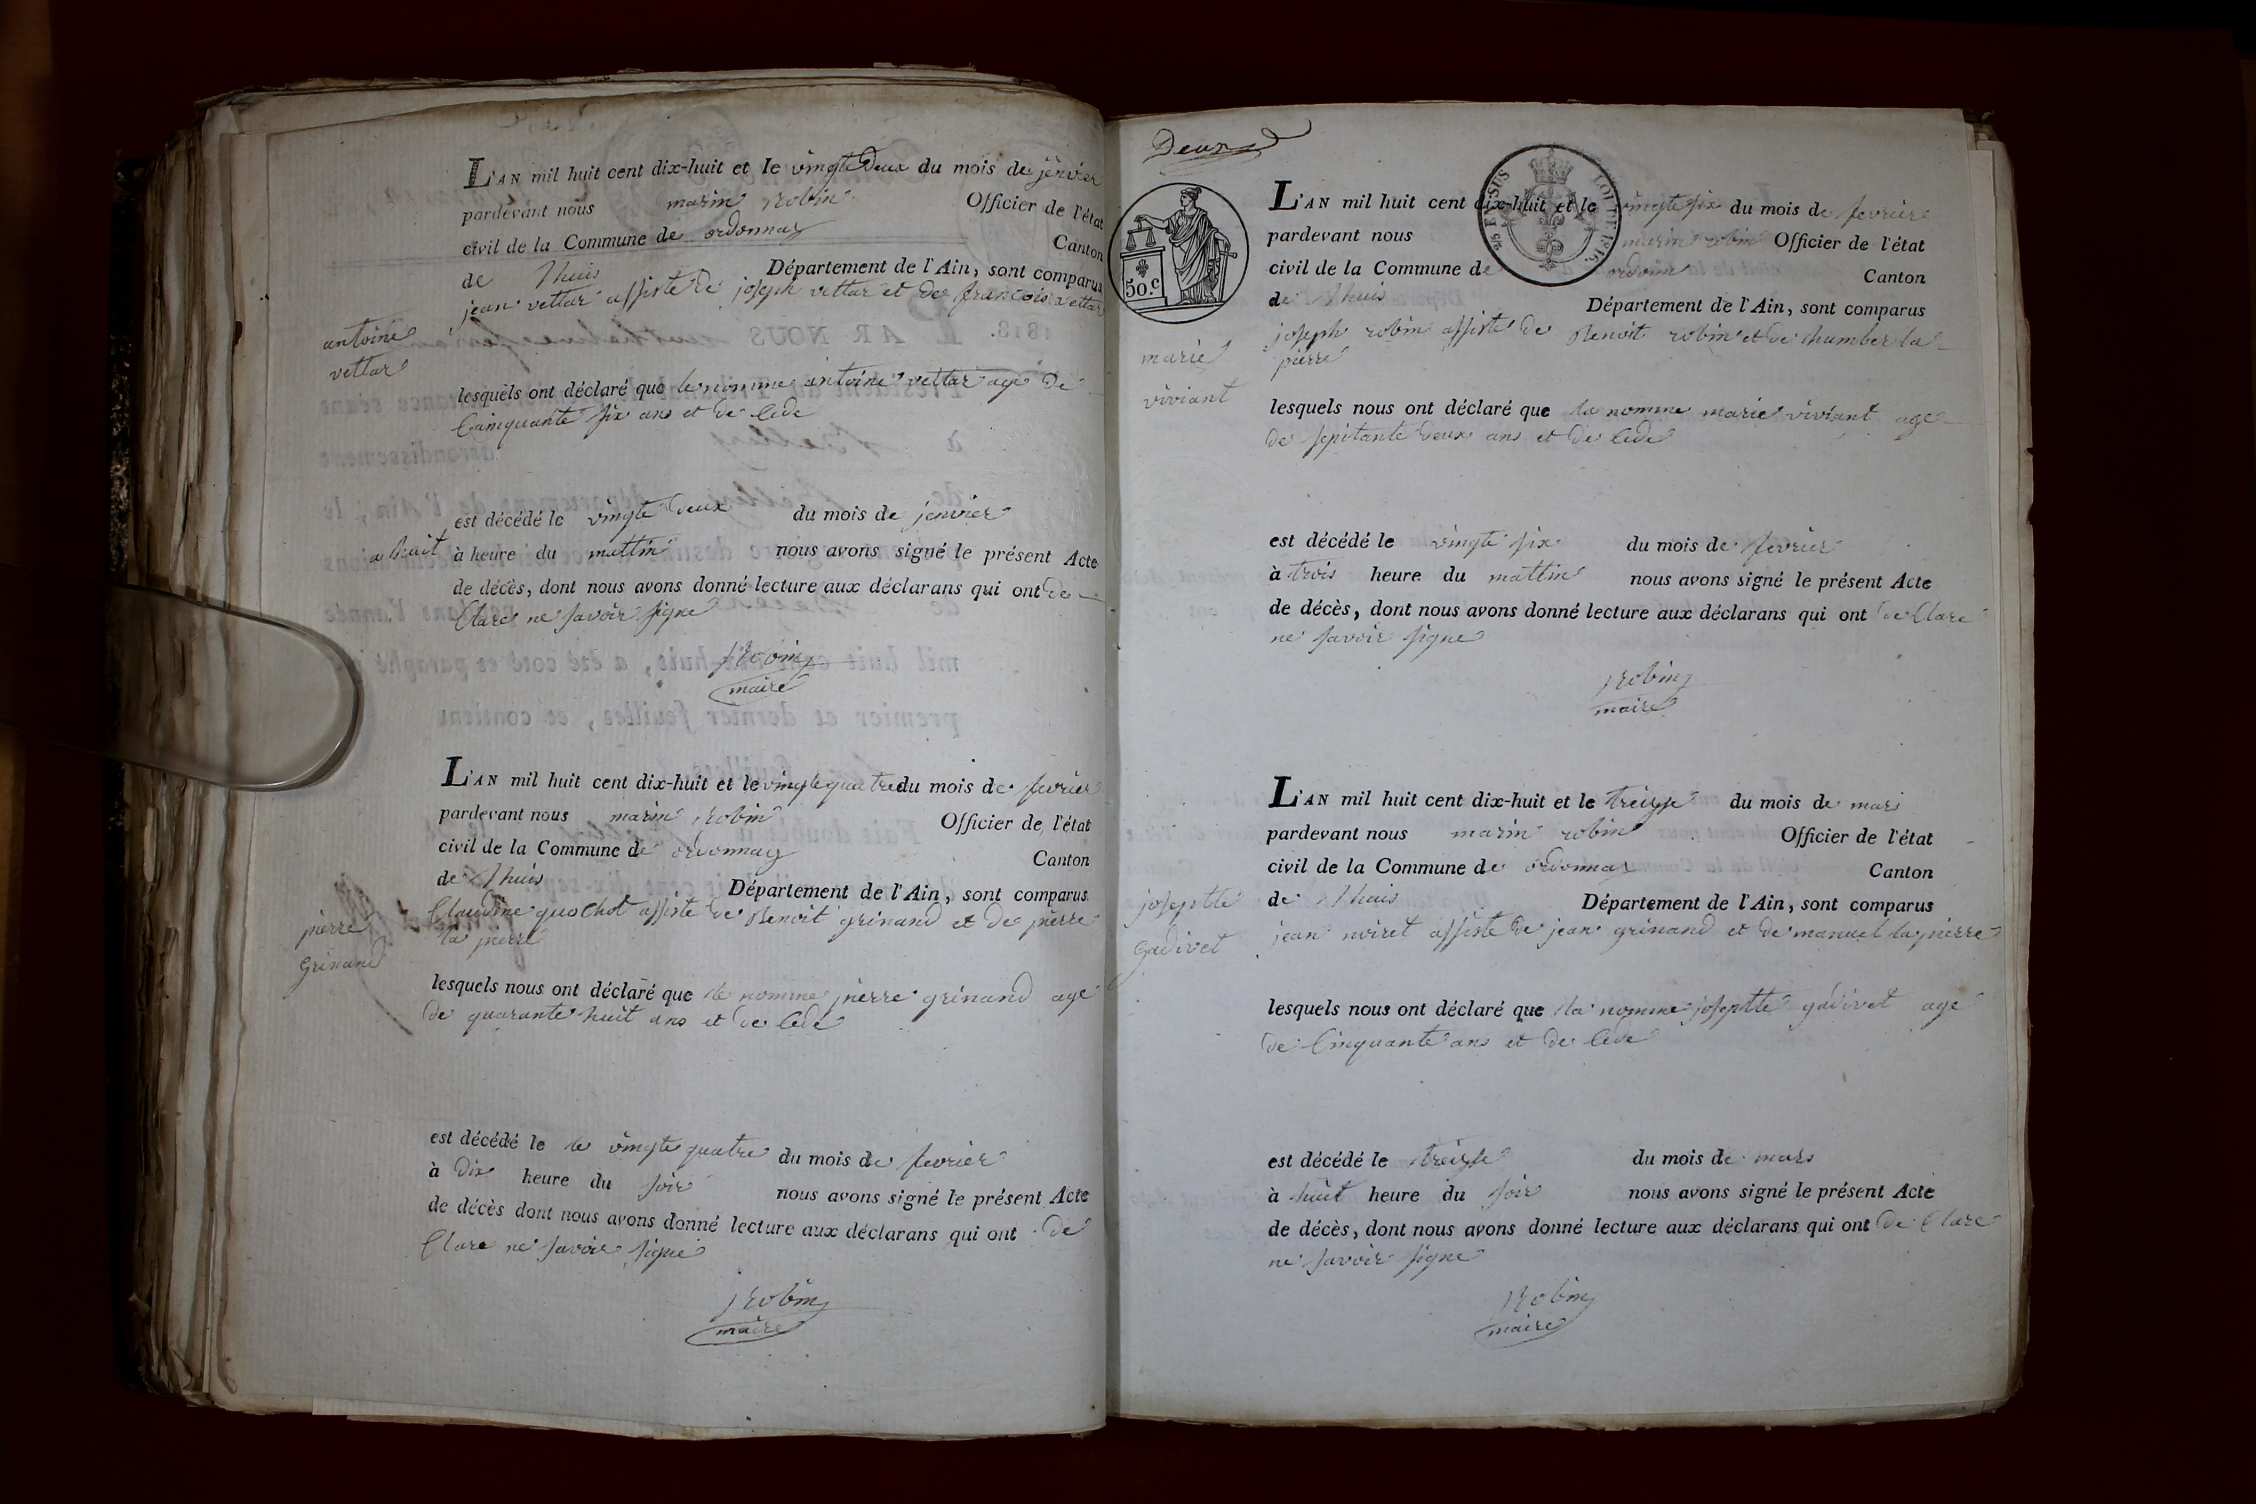 L'AN mil huit cent dix-huit et le vingte Deux du mois de jenvier
pardevant nous marin robin Officier de l'état
civil de la Commune de ordonnay Canton
de lhuis Département de l'Ain, sont comparus
jean vettar assiste de joseph vettar et de francois vettar
antoine
vettar
lesquels ont déclaré que le nomme antoine vettar age de
Cainquante six ans et de Cede
est décédé le vingte deux du mois de jenvier
a huit à heure du mattin nous avons signé le présent Acte
de décès, dont nous avons donné lecture aux déclarans qui ont de
Clare ne savoir signe
Robin
maire
L'AN mil huit cent dix-huit et le vingte quatre du mois de fevrier
pardevant nous marin robin Officier de l'état
civil de la Commune de ordonnay Canton
de lhuis Département de l'Ain, sont comparus
Claudine quochot assiste de Benoit grinand et de pierre
la pierre
pierre
Grinand
lesquels nous ont déclaré que le nomme pierre grinand age
de quarante huit ans et de Cede
est décédé le le vingte quatre du mois de fevrier
à Dix heure du soir nous avons signé le présent Acte
de décès dont nous avons donné lecture aux déclarans qui ont de
Clare ne savoir signe
Robin
maire
Deux
50.c
L'AN mil huit cent dix-huit et le vingte six du mois de fevrier
pardevant nous marin robin Officier de l'état
civil de la Commune de ordonn Canton
de lhuis Département de l'Ain, sont comparus
joseph robin assiste de Benoit robin et de humber la
pierre
marie
viviant
lesquels nous ont déclaré que la nomme marie viviant age
de sepitante deux ans et de Cede
est décédé le vingte six du mois de fevrier
à trois heure du mattin nous avons signé le présent Acte
de décès, dont nous avons donné lecture aux déclarans qui ont de Clare
ne savoir signe
Robin
maire
L'AN mil huit cent dix-huit et le treizse du mois de mars
pardevant nous marin robin Officier de l'état
civil de la Commune de ordonnax Canton
de lhuis Département de l'Ain, sont comparus
jean noiret assiste de jean grinand et de manuel la pierre
joseptte
gadivet
lesquels nous ont déclaré que la nomme joseptte gadivet age
de Cinquante ans et de Cede
est décédé le treizse du mois de mars
à huit heure du soir nous avons signé le présent Acte
de décès, dont nous avons donné lecture aux déclarans qui ont de Clare
ne savoir signe
Robin
maire